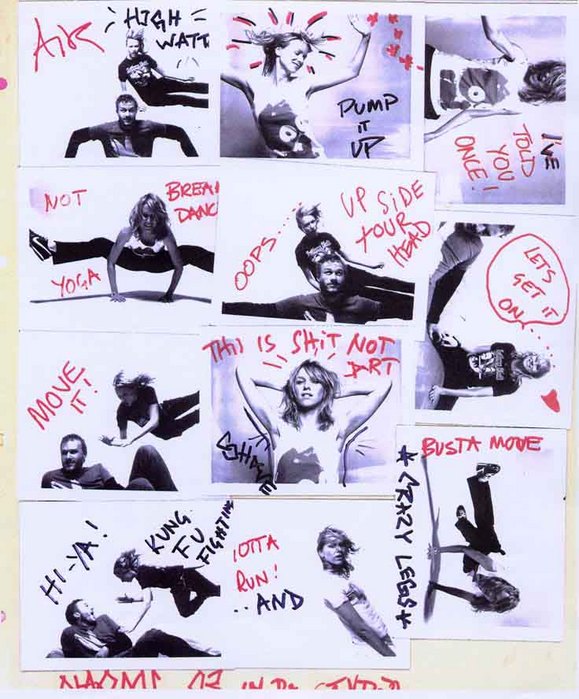 AIR
HIGH
WATT
PUMP
IT
UP
I'VE
TOLD
YOU
ONCE!
NOT
YOGA
BREAK
DANC
OOPS...
UP SIDE
YOUR
HEAD
LETS
GET IT
ON
MOVE
IT!
THIS IS SHIT NOT
ART
SHAVE
BUSTA MOVE
* CRAZY LEGS *
HI-YA!
KUNG
FU
FIGHTING
GOTTA
RUN!
..AND